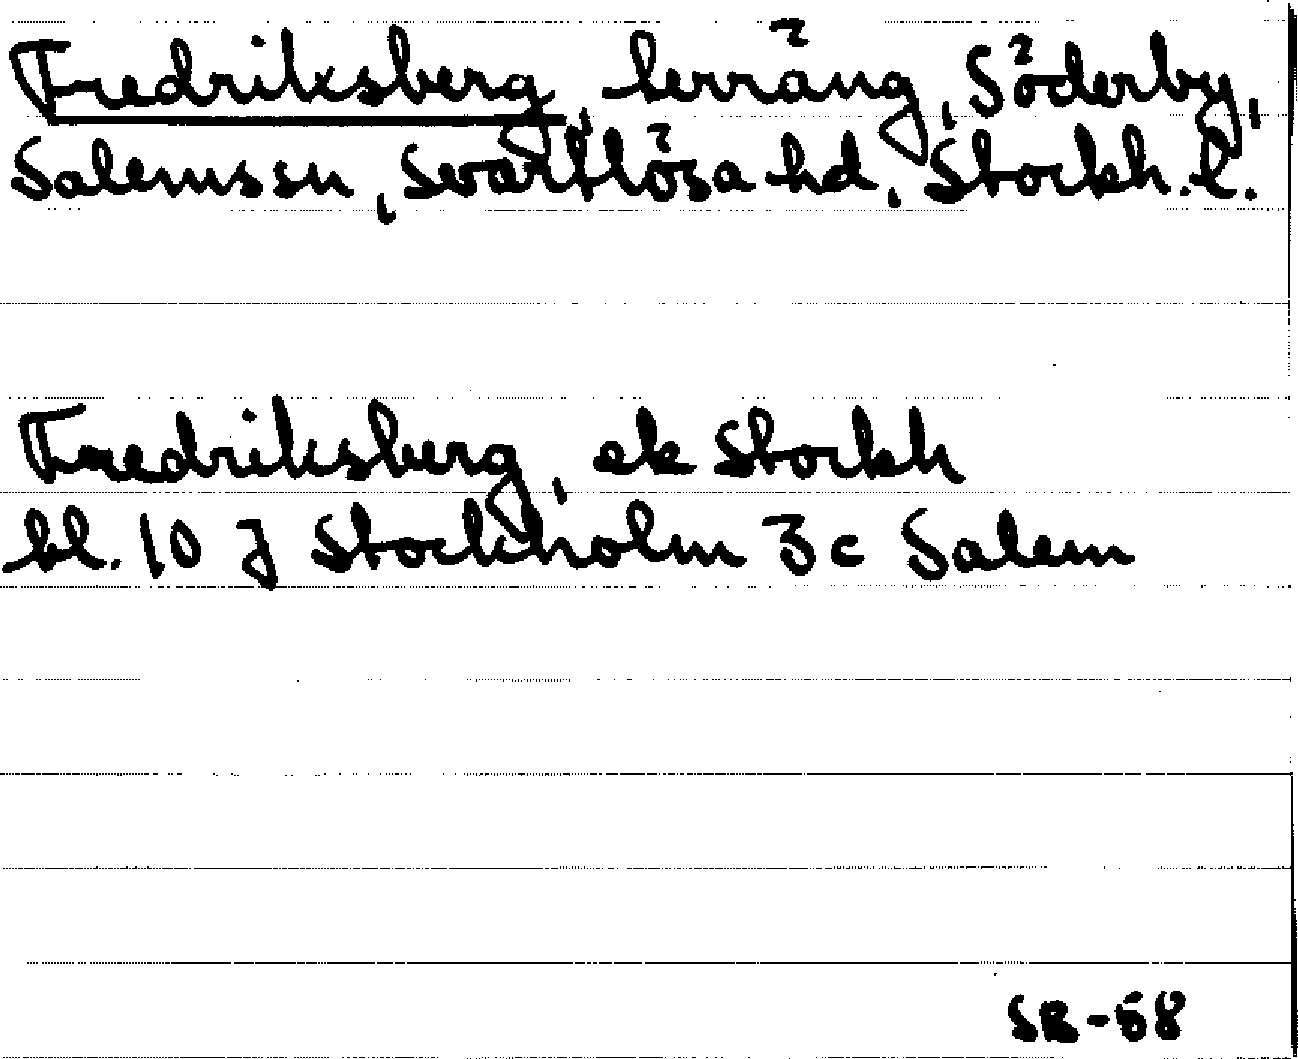 Fredriksberg, terräng, Söderby,
Salems sn, Svartlösa hd, Stockh. l.
Fredriksberg, ek Stockh
bl. 10 J Stockholm 3c Salem
SR-68